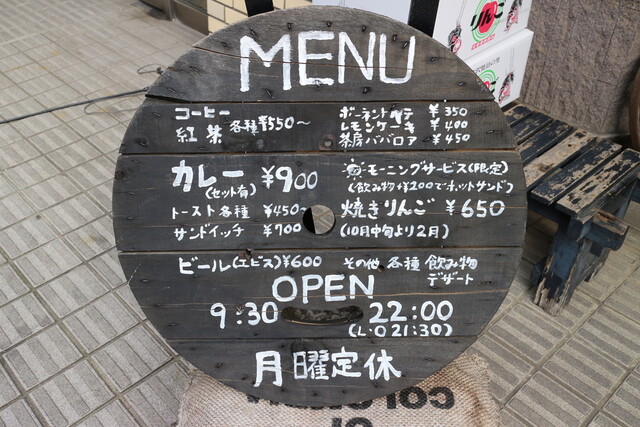 MENU
コーヒー
紅茶 各種 ¥550〜
ポーランドパテ ¥350
レモンケーキ ¥400
茶房ババロア ¥450
カレー ¥900
(セット有)
モーニングサービス(限定)
(飲み物+¥200でホットサンド)
トースト各種 ¥450〜
サンドイッチ ¥700
焼きりんご ¥650
(10月中旬より2月)
ビール(エビス)¥600
その他 各種 飲み物
デザート
OPEN
9:30 22:00
(L・O 21:30)
月曜定休
りんご